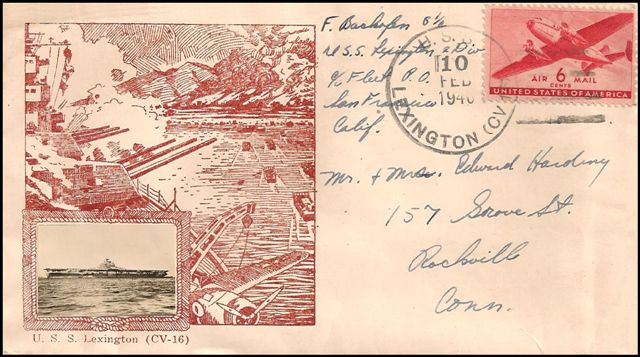 F. Bachofer S 1/c
U.S.S. Lexington A Div
c/o Fleet P.O.
San Francisco
Calif.
U.S.S.
10
FEB
1946
LEXINGTON (CV
AIR 6 MAIL
CENTS
UNITED STATES OF AMERICA
Mr. + Mrs. Edward Harding
157 Grove St.
Rockville
Conn.
U. S. S. Lexington (CV-16)